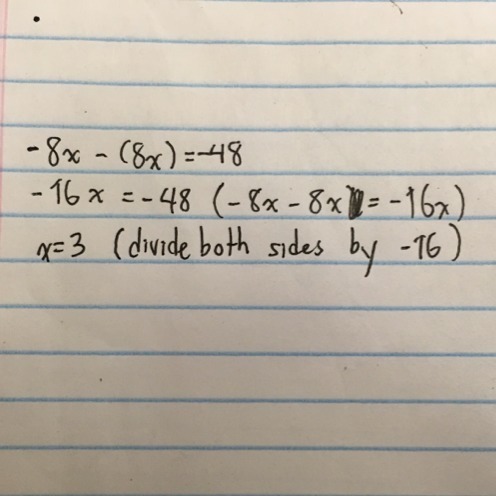 -8x - (8x) = -48
-16x = -48 (-8x - 8x = -16x)
x=3 (divide both sides by -16)